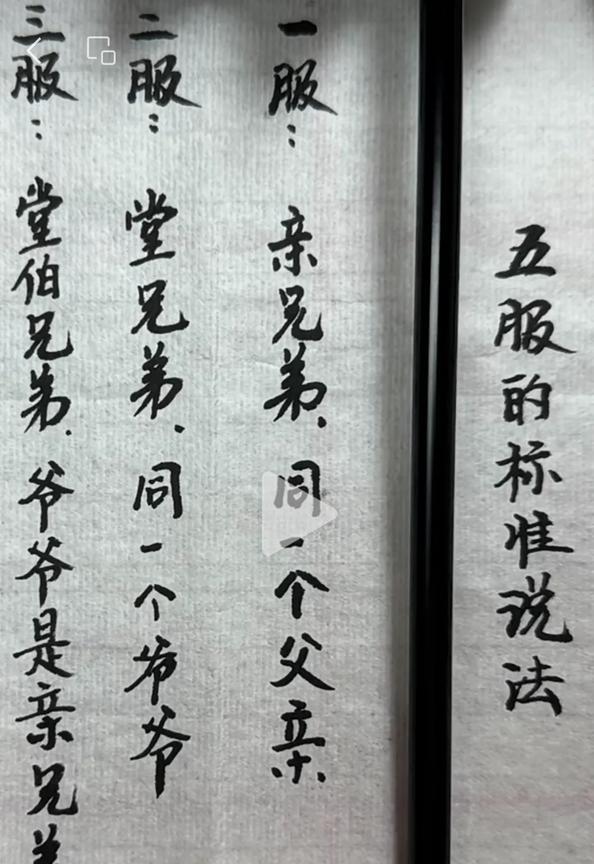 五服的标准说法
一服：亲兄弟.同一个父亲.
二服：堂兄弟.同一个爷爷
三服：堂伯兄弟.爷爷是亲兄弟